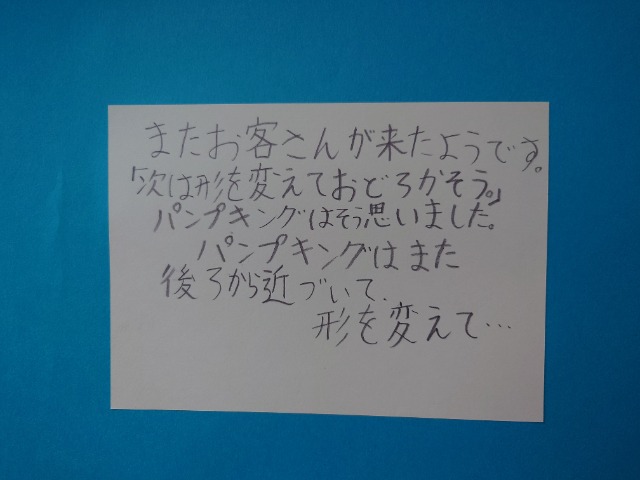 またお客さんが来たようです。
「次は形を変えておどろかそう。」
パンプキングはそう思いました。
パンプキングはまた
後ろから近づいて、
形を変えて…